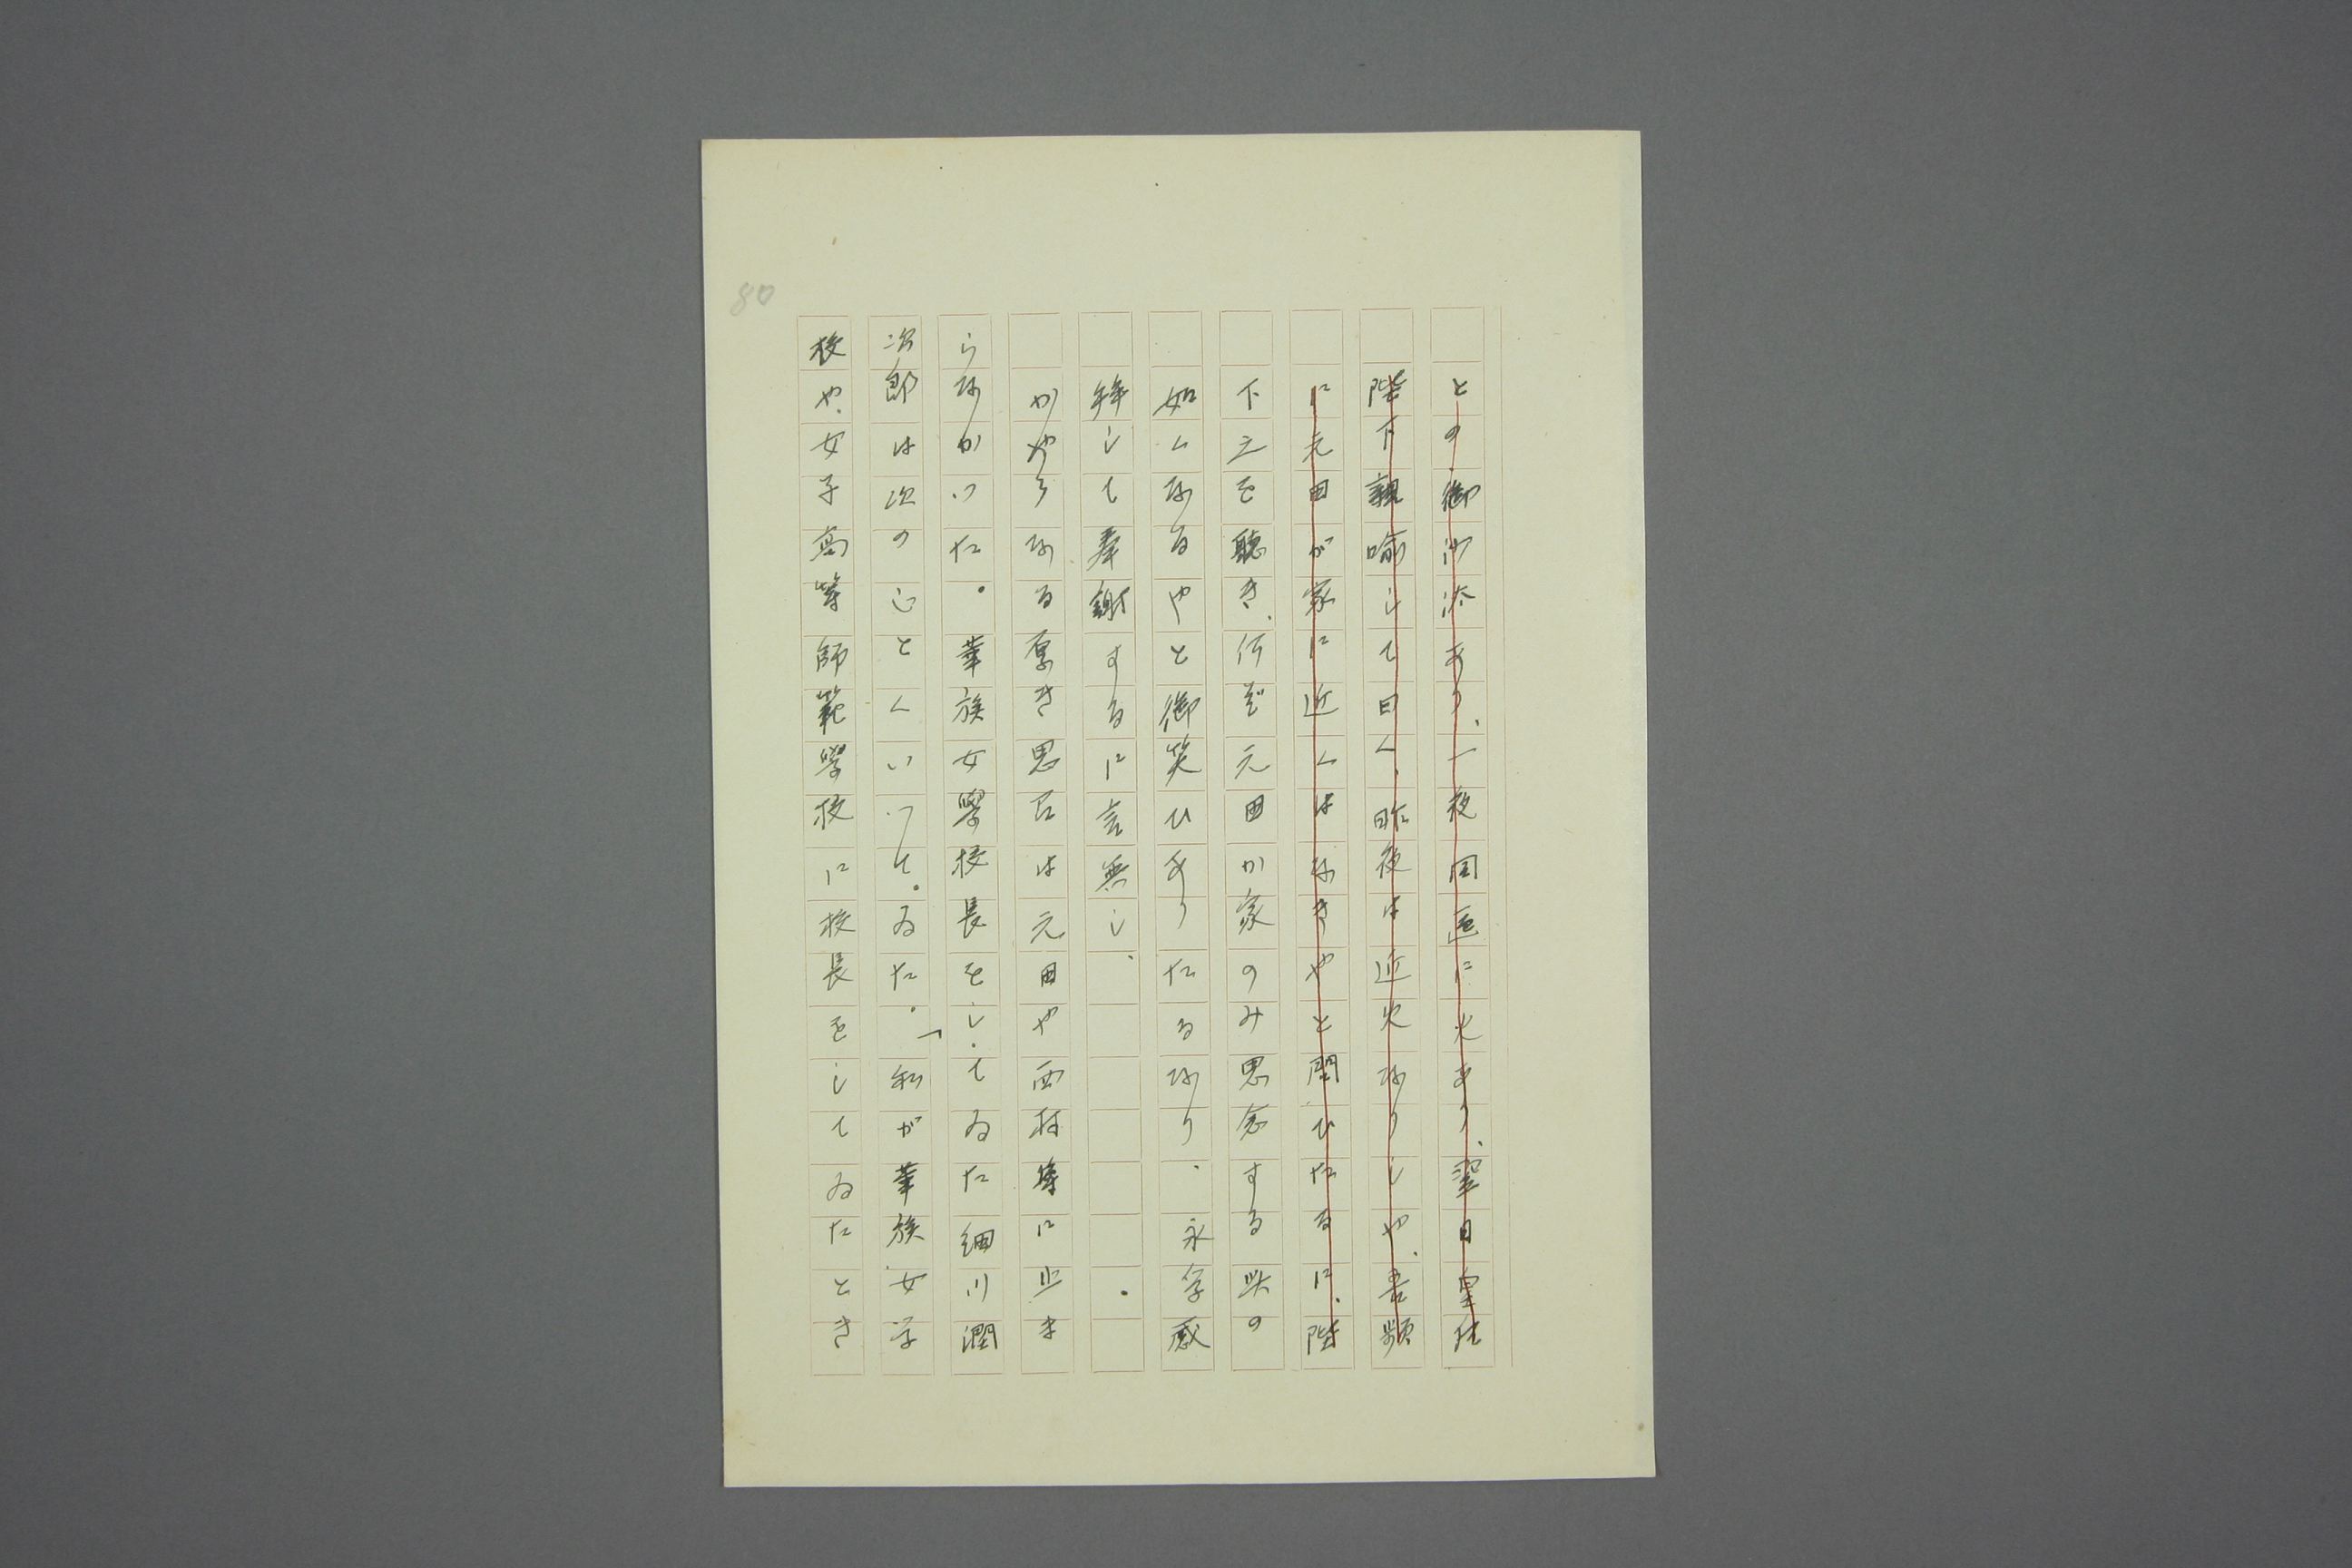 との御沙汰あり、一夜同區に火あり、翌日皇后
陛下親喩して曰く、昨夜は近火なりしや、吾頻
に元田が家に近くはなきやと問ひたるに、陛
下之を聴き、何ぞ元田か家のみ思念する此の
如くなるやと御笑ひありたるなり、永孚感
拜して奉謝するに言無し、
かやうなる厚き思召は元田や西村等に止ま
らなかつた。華族女學校長をしてゐた細川潤
次郎は次のごとくいつてゐた。「私が華族女学
校や、女子高等師範學校に校長をしてゐたとき
80